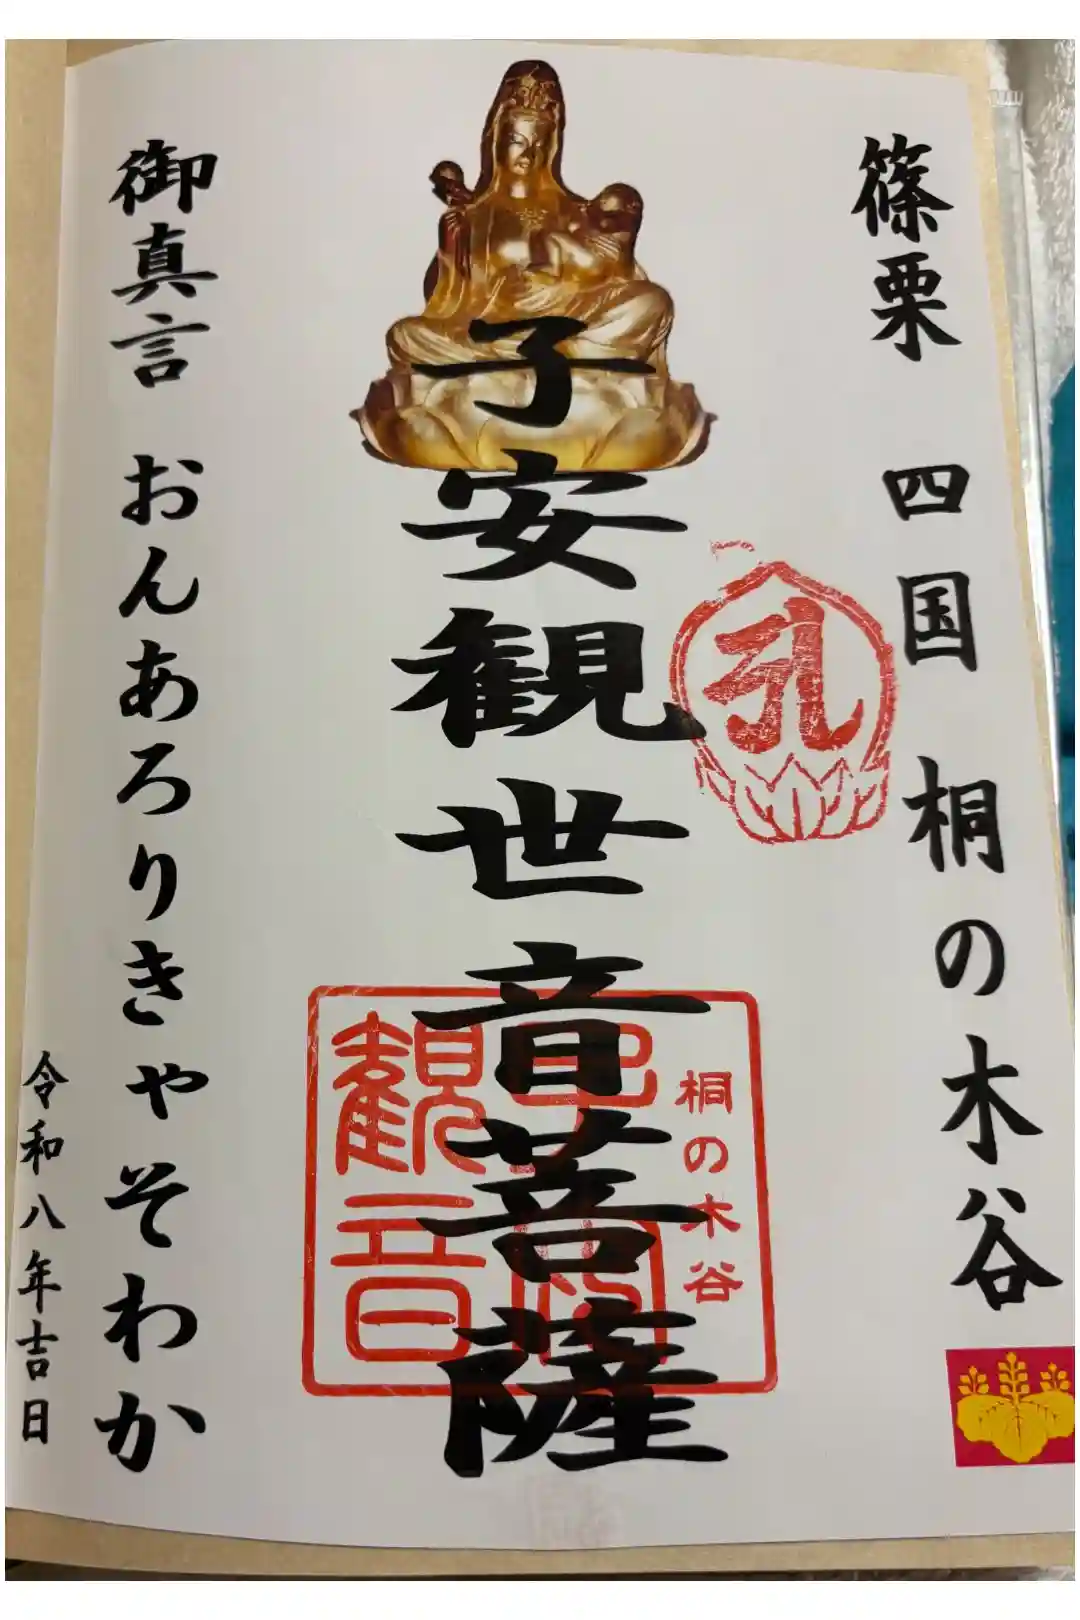 篠栗 四国 桐の木谷
子安観世音菩薩
桐の木谷
観音
御真言 おんあろりきゃそわか
令和八年吉日